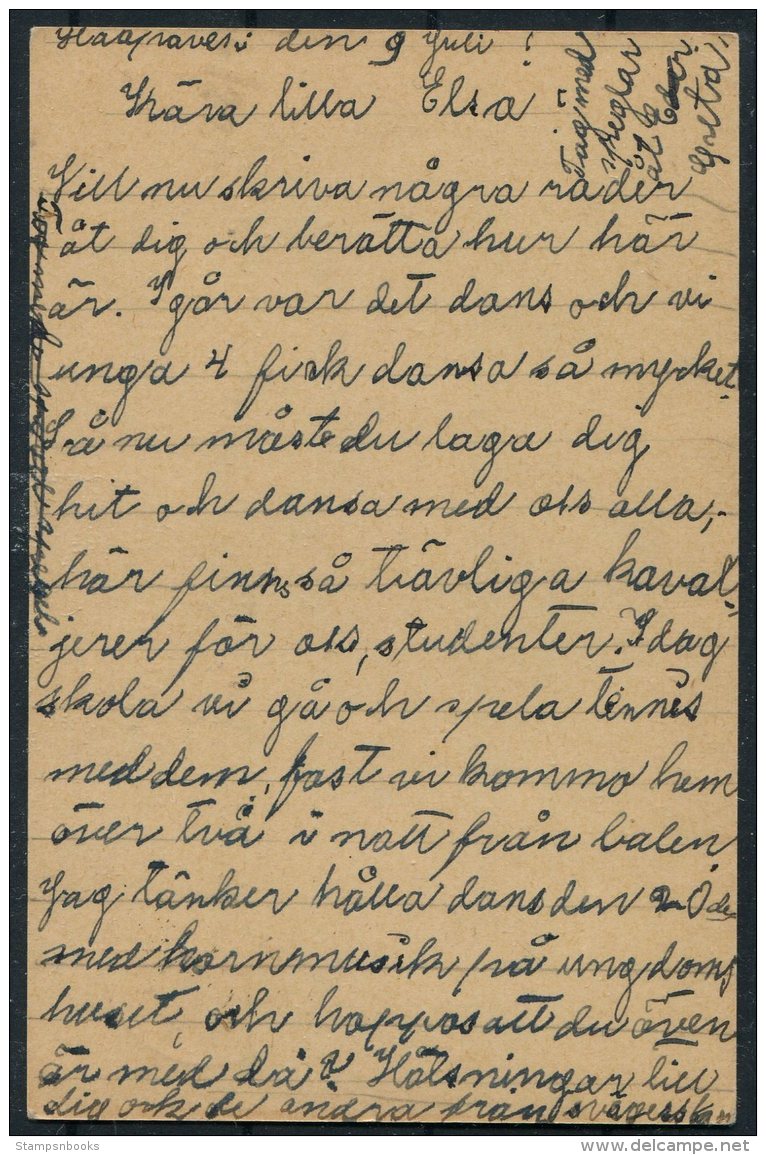 Haapavesi den 9 Juli!
Kära lilla Elsa
Tag med
speglar
åt Eder
Greta
Vill nu skriva några rader
åt dig och berätta hur här
är. I går var det dans och vi
unga 4 fick dansa så mycket.
Så nu måste du laga dig
hit och dansa med oss alla,-
här finns så trävliga kaval-
jerer för oss, studenter. I dag
skola vi gå och spela tennis
med dem, fast vi kommo hem
över två i natt från balen
Jag tänker hålla dans den 20 de
med hornmusik på ungdoms
huset, och hoppas att du även
är med då? Hälsningar till
dig och de andra från svägerskan
StampsnBooks